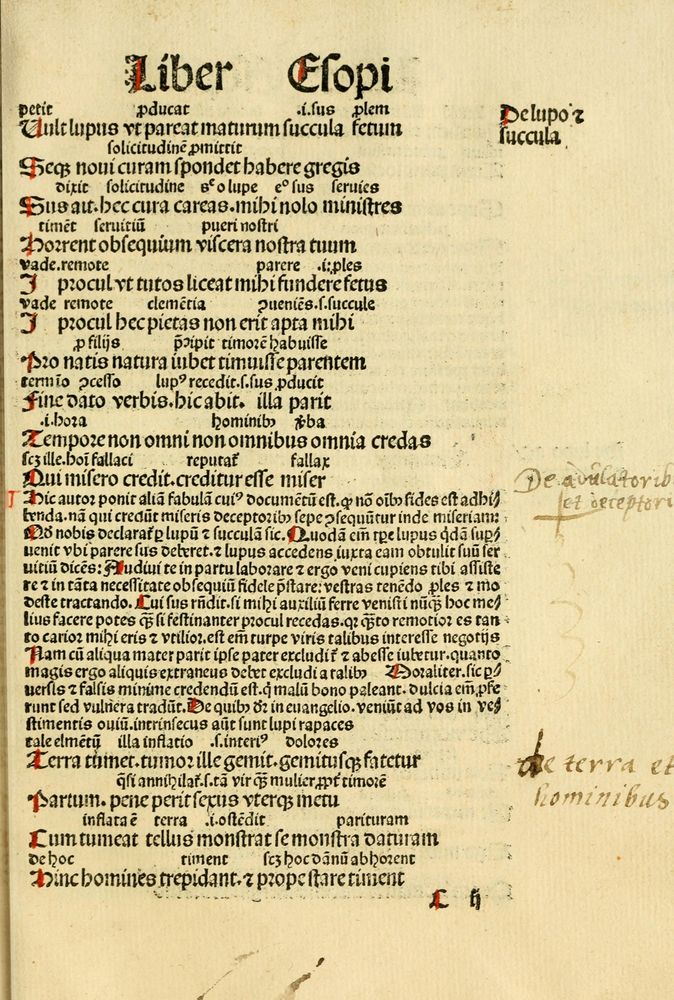 Liber Esopi
petit ꝓducat .i.sus ꝓlem
Uult lupus vt pareat maturum succula fetum
De lupo ⁊
succula
solicitudinē ꝓmittit
Seqꝫ noui curam spondet habere gregis
dixit solicitudine s⁊ o lupe eꝰ sus seruies
Sus ait. hec cura careas. mihi nolo ministres
timēt seruitiū pueri nostri
Horrent obsequium viscera nostra tuum
vade. remote parere .i. ꝓles
I procul vt tutos liceat mihi fundere fetus
vade remote clemētia ꝯueniēs. s. succule
I procul hec pietas non erit apta mihi
ꝓ filijs p̄cipit timorē habuisse
Pro natis natura iubet timuisse parentem
termīo ꝯcesso lupꝰ recedit. s. sus ꝓducit
Fine dato verbis. hic abit. illa parit
.i. hora hominibꝫ v̄ba
Tempore non omni non omnibus omnia credas
scꝫ ille. hoī fallaci reputat̄ fallax
Qui misero credit. creditur esse miser
Hic autor ponit aliā fabulā cuiꝰ documētū est. ꝙ nō oībꝰ fides est adhi
benda. nā qui credūt miseris deceptoribꝫ sepe ꝯsequūtur inde miseriam:
De avulatorib
et deceptori
Qđ nobis declarat̄ ꝑ lupū ⁊ succulā sic. Quodā em̄ tꝑe lupus qͥdā suꝑ
uenit vbi parere sus deberet. ⁊ lupus accedens iuxta eam obtulit suū ser
uitiū dicēs: Audiui te in partu laborare ⁊ ergo veni cupiens tibi assiste
re ⁊ in tāta necessitate obsequiū fidele p̄stare: vestras tenēdo ꝓles ⁊ mo
deste tractando. Cui sus rn̄dit. si mihi auxiliū ferre venisti nūqͣꝫ hoc me
lius facere potes qͣꝫ si festinanter procul recedas. qr qͣꝫto remotior es tan
to carior mihi eris ⁊ vtilior. est em̄ turpe viris talibus interesse negotijs
Nam cū aliqua mater parit ipse pater excludit̄ ⁊ abesse iubetur. quanto
magis ergo aliquis extraneus debet excludi a talibꝫ Moraliter. sic ꝑ
uersis ⁊ falsis minime credendū est. qͥ malū bono paleant. dulcia em̄ ꝓfe
runt sed vulnera tradūt. De quibꝫ dr̄ in euangelio. veniūt ad vos in ve
stimentis ouiū. intrinsecus aūt sunt lupi rapaces
tale elmētū illa inflatio .s. interiꝰ dolores
Terra tumet. tumor ille gemit. gemitusqꝫ fatetur
de terra et
hominibus
qͣsi annihilat̄. s. tā vir qͣꝫ mulier. ꝓpt̄ timorē
Partum. pene perit sexus vterqꝫ metu
inflata ē terra .i. ostēdit parituram
Cum tumeat tellus monstrat se monstra daturam
de hoc timent scꝫ hoc dānū abhorent
Hinc homines trepidant. ⁊ prope stare timent
C ii